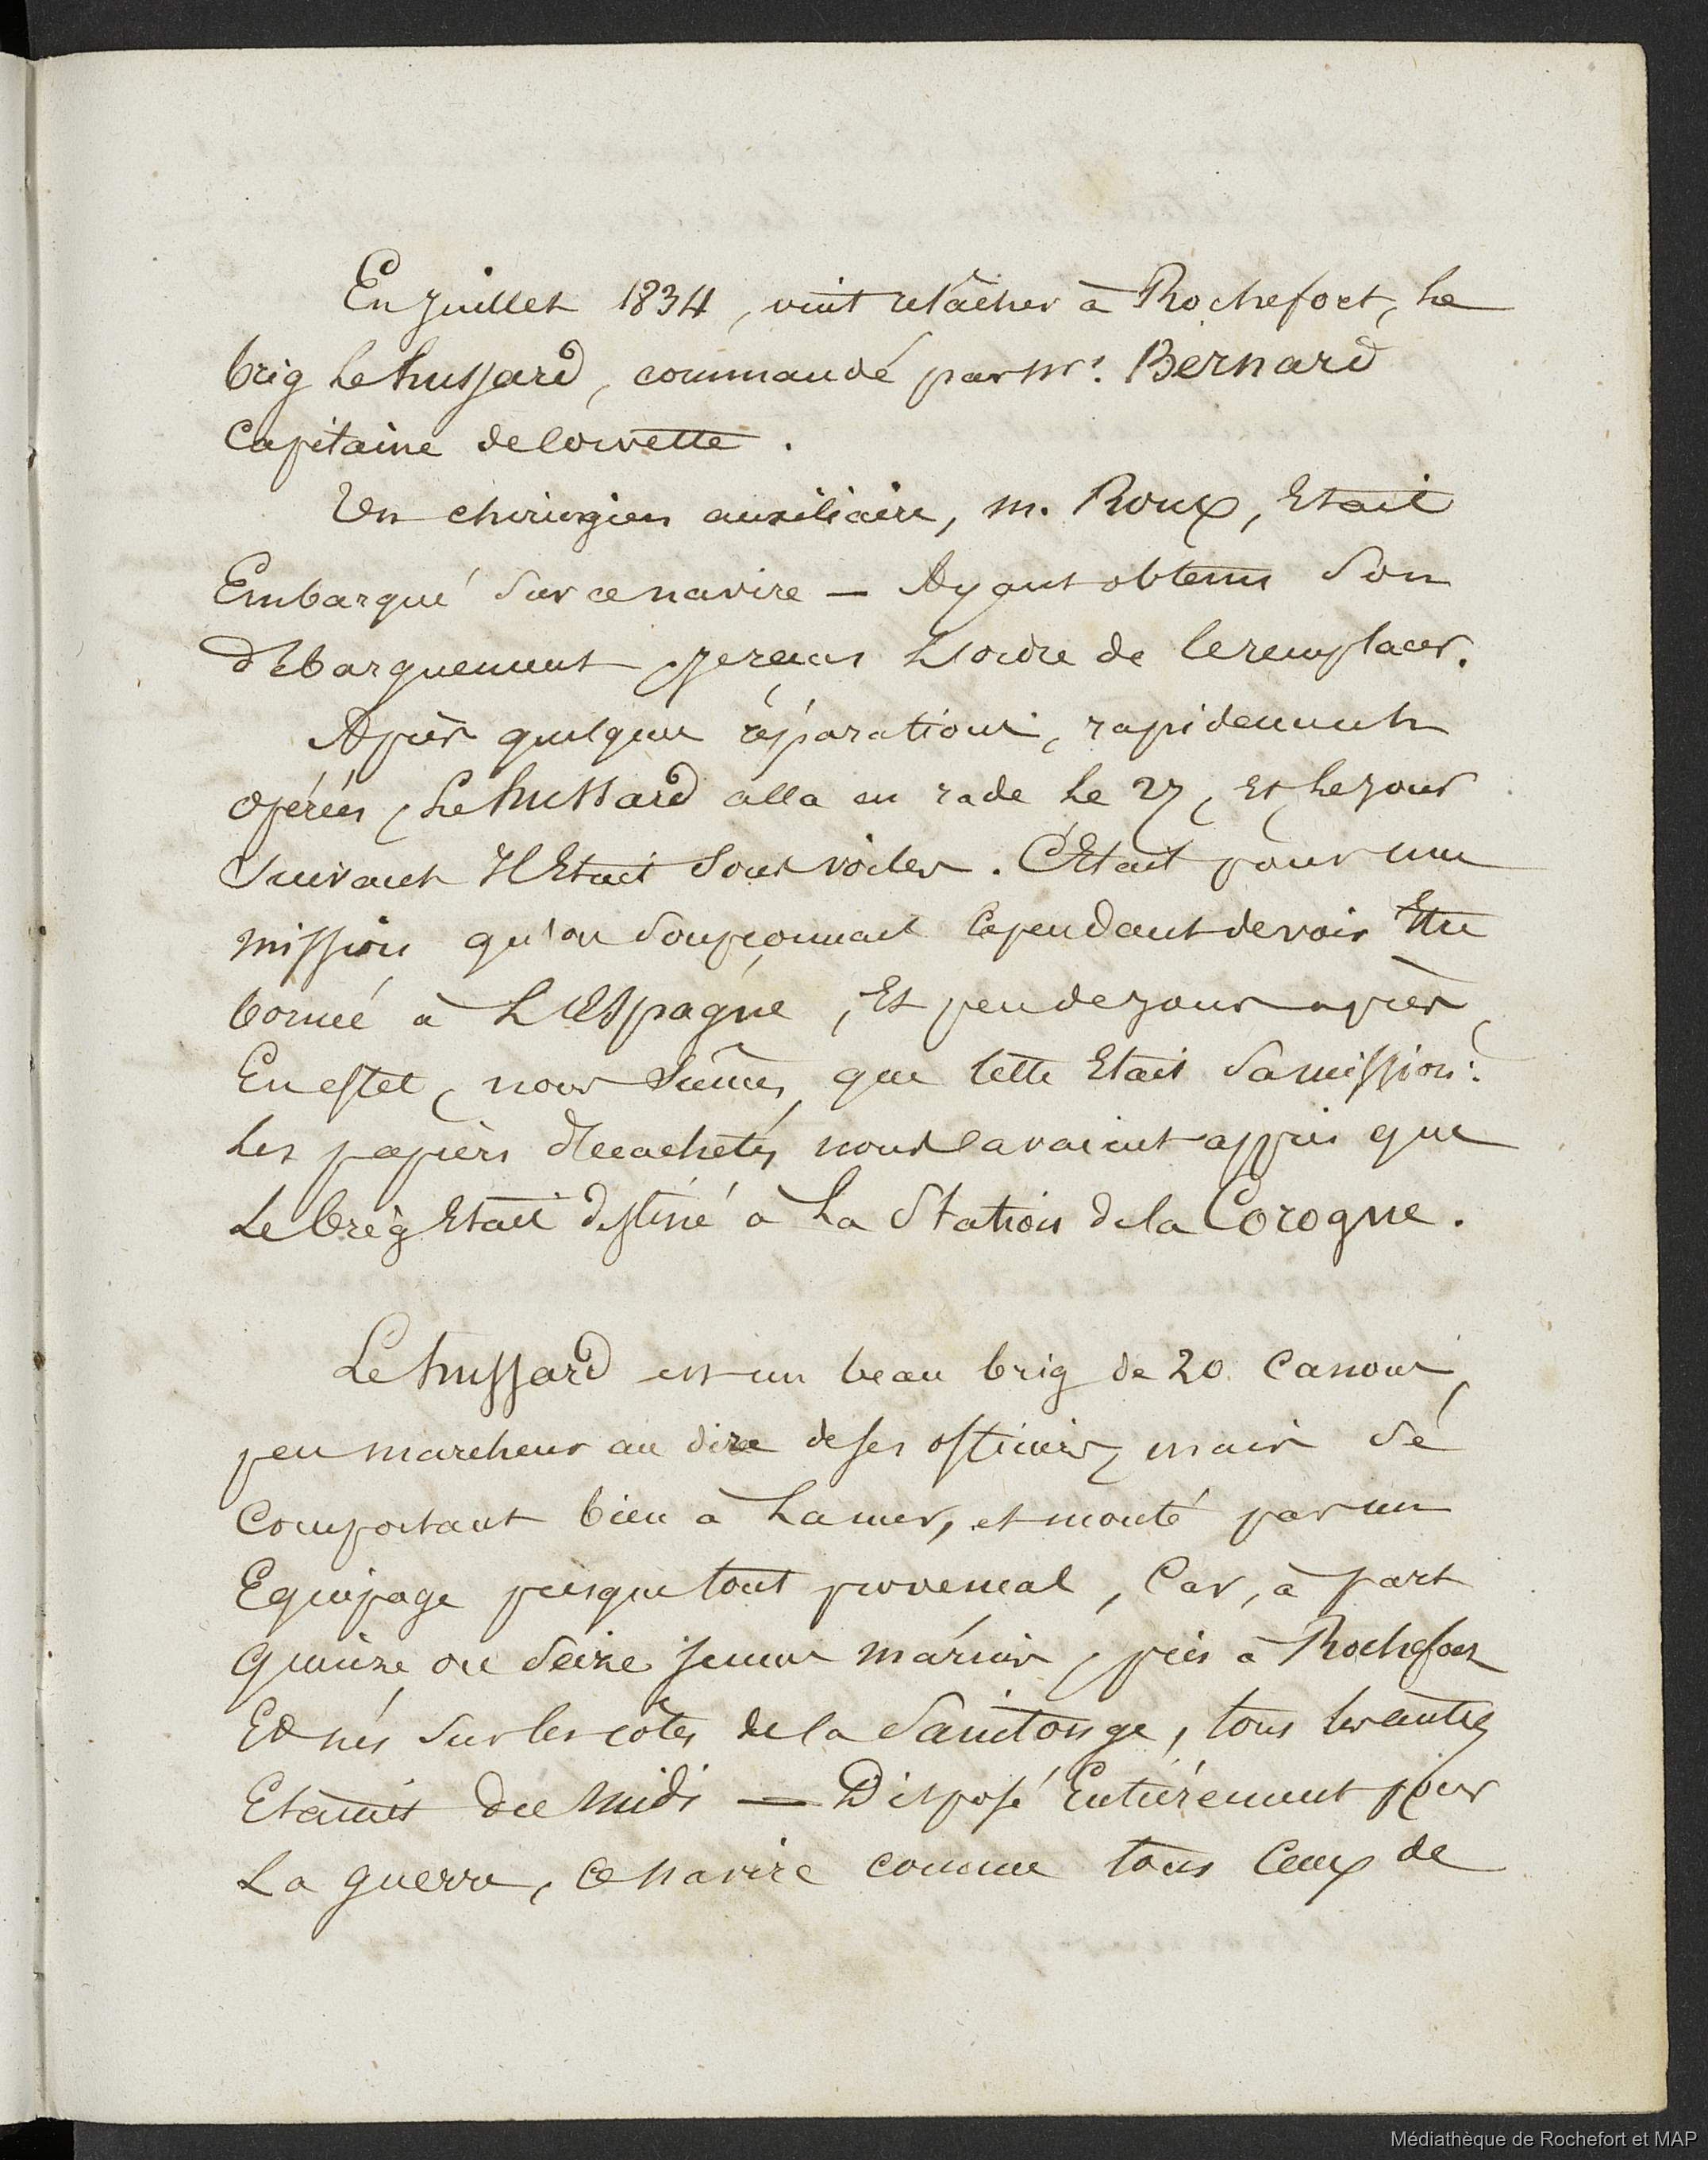 En juillet 1834, vint relâcher à Rochefort, le
brig le hussard, commandé par Mr. Bernard
Capitaine de Corvette.
Un chirurgien auxiliaire, m. Roux, Etait
Embarqué sur ce navire — Ayant obtenu son
débarquement je reçus L'ordre de le remplacer.
Après quelques réparations, rapidement
opérées, Le hussard alla en rade le 27, Et le jour
suivant Il Etait sous voiles. C'Etait pour une
mission qu'on soupçonnait Cependant devoir Etre
bornée à L'Espagne, Et peu de jours après,
En effet, nous sûmes que telle Etait sa mission:
Les papiers décachetés nous avaient appris que
Le brig Etait destiné à La Station de la Corogne.
Le hussard est un beau brig de 20 Canons,
peu marcheur au dire de ses officiers, mais se
Comportant bien à La mer, et monté par un
Equipage presque tout provencal, Car, à part
quinze ou seize jeunes marins, pris à Rochefort
Et nés sur les côtes de la Saintonge, tous les autres
Etaient du Midi — Disposé Entièrement pour
La guerre, ce navire comme tous Ceux de
Médiathèque de Rochefort et MAP